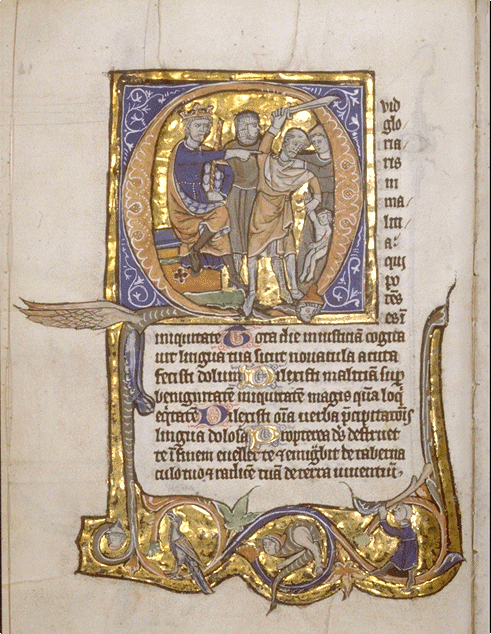 vid
glo
ria
ris
in
ma
liti
a:
qui
po
tēs
es ī
iniquitate Tota die iniusticiam cogita
uit lingua tua sicut nouacula acuta
fecisti dolum Dilexisti maliciam sup
benignitatem iniquitatem magis quā loq̄
eq̄tatē Dilexisti oīa uerba p̄cipitatōis
lingua dolosa Propterea dš destruet
te ī finem euellet te & emigbit te de taberna
culo tuo & radicē tuā de terra uiuentiū